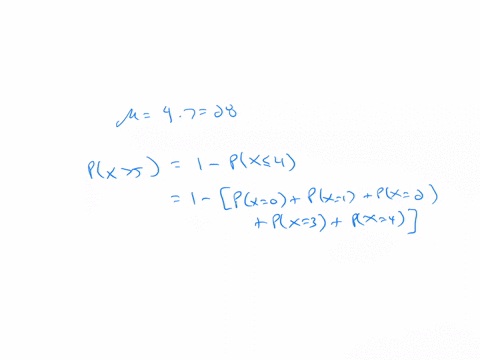 μ = 4.7=28
P(x>5) = 1 - P(x≤4)
= 1 - [P(x=0) + P(x=1) + P(x=2)
+ P(x=3) + P(x=4)]